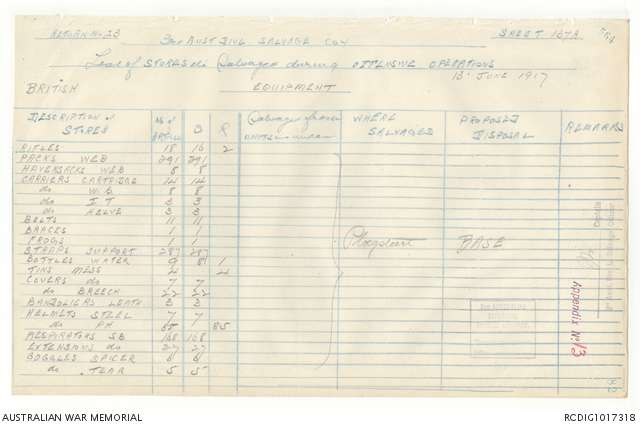 RETURN No 23 3rd AUST DIVL SALVAGE COY SHEET 107A
List of STORES &c Salvaged during OFFENSIVE OPERATIONS
13 JUNE 1917
BRITISH EQUIPMENT
DESCRIPTION of STORES No of ARTICLE S R Salvaged from WHERE SALVAGED PROPOSED DISPOSAL REMARKS
RIFLES 18 16 2
PACKS WEB 291 291
HAVERSACKS WEB 8 8
CARRIERS CARTRIDGE 14 14
do W.B 8 8
do I.T 3 3
do HELVE 3 3
BELTS 11 11
BRACES 1 1
FROGS 1 1
STRAPS SUPPORT 287 287
BOTTLES WATER 9 8 1
TINS MESS 4 4
COVERS do 7 7
do BREECH 22 22
BANDOLIERS LEATH 3 3
HELMETS STEEL 7 7
do PH 85 85
RESPIRATORS SB 168 168
EXTENSIONS do 27 27
GOGGLES SPICER 6 6
do TEAR 5 5
Ploegsteert BASE
Captain
Appendix No 13
AUSTRALIAN WAR MEMORIAL RCDIG1017318